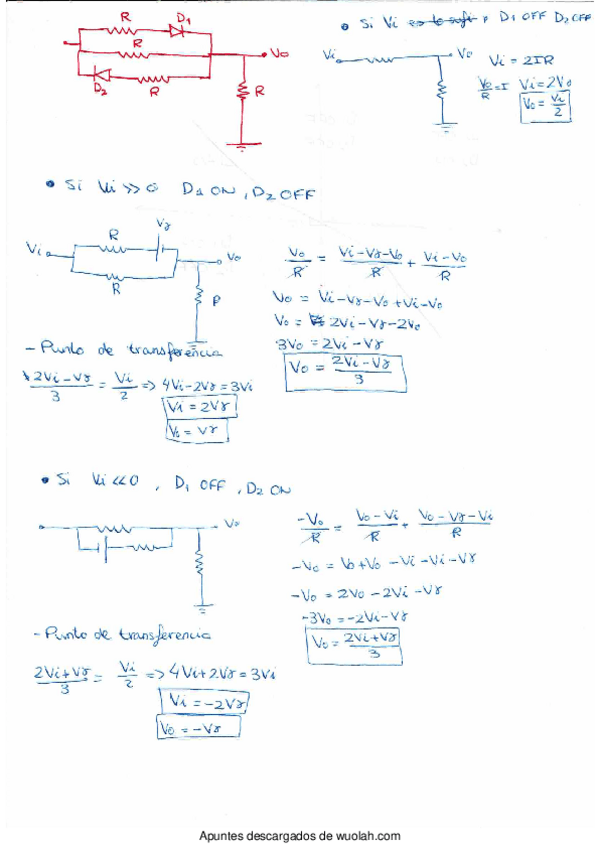 R D1
R
Vo
D2 R
R
• Si Vi D1 OFF D2 OFF
Vi Vo
Vi = 2IR
Vo/R = I Vi = 2Vo
Vo = Vi/2
• Si Vi >> 0 D1 ON, D2 OFF
Vi R Vγ Vo
R
R
Vo/R = (Vi-Vγ-Vo)/R + (Vi-Vo)/R
Vo = Vi-Vγ-Vo+Vi-Vo
Vo = 2Vi-Vγ-2Vo
3Vo = 2Vi-Vγ
Vo = (2Vi-Vγ)/3
- Punto de transferencia
(2Vi-Vγ)/3 = Vi/2 => 4Vi-2Vγ = 3Vi
Vi = 2Vγ
Vo = Vγ
• Si Vi << 0, D1 OFF, D2 ON
Vo
-Vo/R = (Vo-Vi)/R + (Vo-Vγ-Vi)/R
-Vo = Vo+Vo-Vi-Vi-Vγ
-Vo = 2Vo-2Vi-Vγ
-3Vo = -2Vi-Vγ
Vo = (2Vi+Vγ)/3
- Punto de transferencia
(2Vi+Vγ)/3 = Vi/2 => 4Vi+2Vγ = 3Vi
Vi = -2Vγ
Vo = -Vγ
Apuntes descargados de wuolah.com